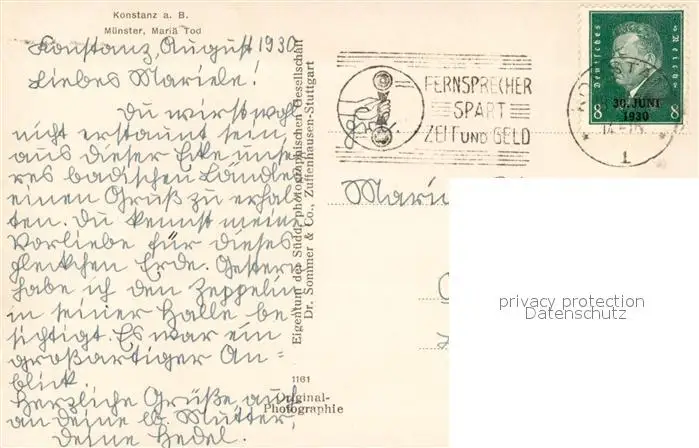 Konstanz a. B.
Münster, Mariä Tod
Konstanz, August 1930
Liebes Mariele!
Du wirst wohl
nicht erstaunt sein,
aus dieser Ecke unse
res badischen Ländle
einen Gruß zu erhal
ten. Du kennst meine
Vorliebe für dieses
fleckchen Erde. Gestern
habe ich den Zeppelin
in seiner Halle be
sichtigt. Es war ein
großartiger An=
blick.
Herzliche Grüße auch
an deine lb. Mutter,
deine Hedel.
Eigentum der Südd. photographischen Gesellschaft
Dr. Sommer & Co., Zuffenhausen-Stuttgart
1161
Original-
Photographie
FERNSPRECHER
SPART
ZEIT UND GELD
Deutsches Reich
8 8
30. JUNI
1930
1
privacy protection
Datenschutz